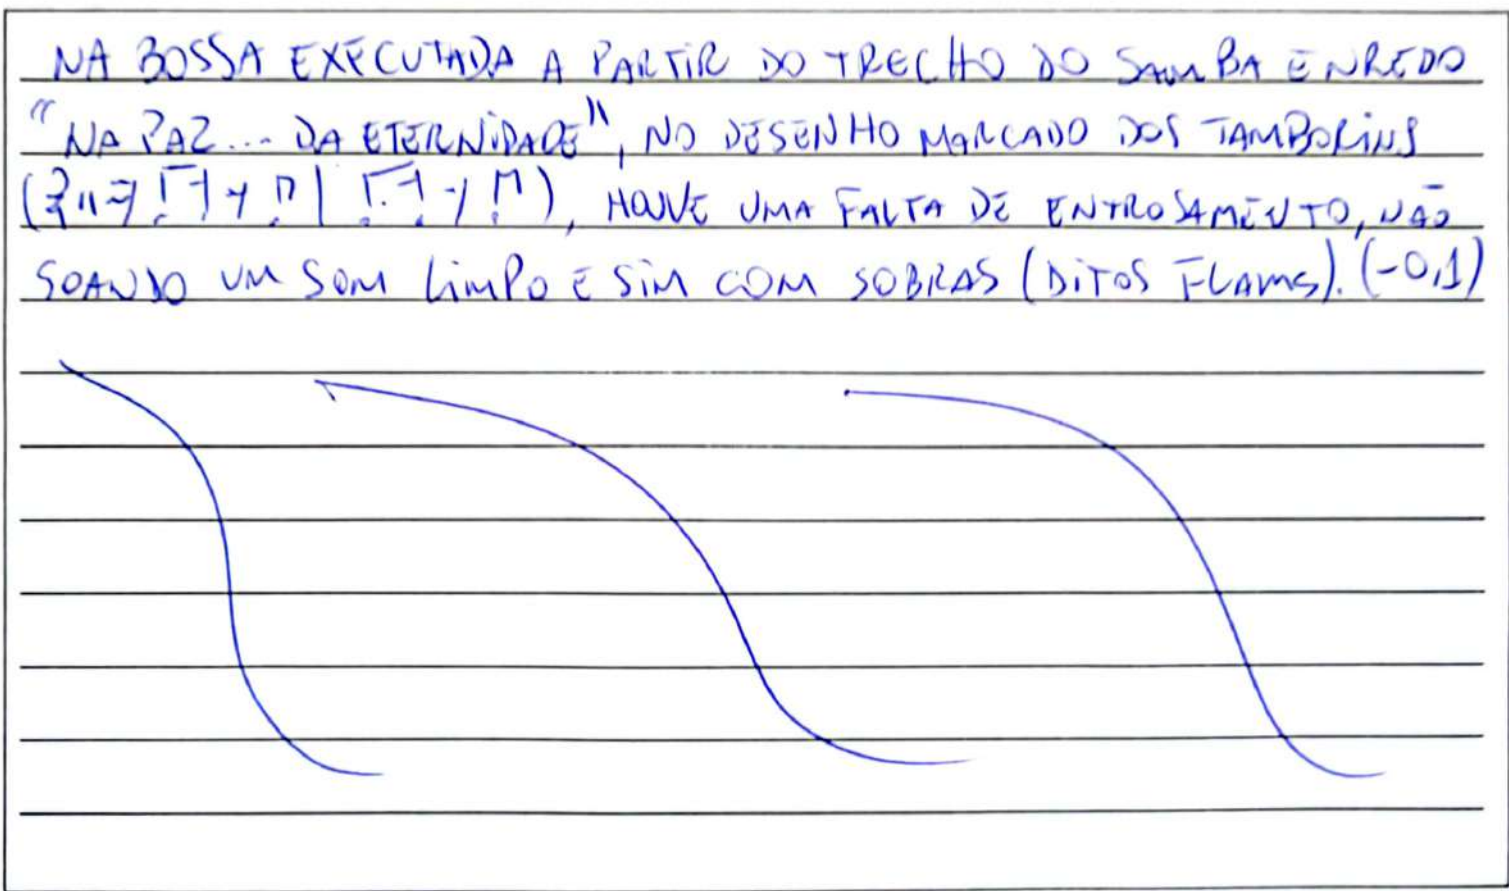 NA BOSSA EXECUTADA A PARTIR DO TRECHO DO SAMBA ENREDO
"NA PAZ... DA ETERNIDADE", NO DESENHO MARCADO DOS TAMBORINS
( ), HOUVE UMA FALTA DE ENTROSAMENTO, NÃO
SOANDO UM SOM LIMPO E SIM COM SOBRAS (DITOS FLAMS). (-0,1)